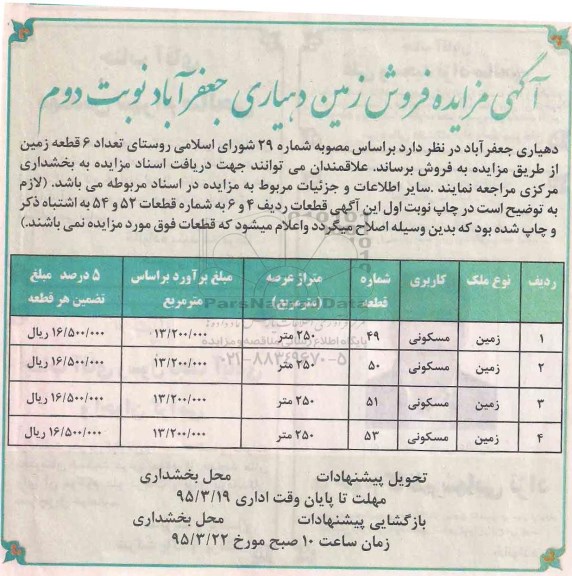 آگهی مزایده فروش زمین دهیاری جعفرآباد نوبت دوم
دهیاری جعفرآباد در نظر دارد براساس مصوبه شماره ۲۹ شورای اسلامی روستای تعداد ۶ قطعه زمین
از طریق مزایده به فروش برساند. علاقمندان می توانند جهت دریافت اسناد مزایده به بخشداری
مرکزی مراجعه نمایند .سایر اطلاعات و جزئیات مربوط به مزایده در اسناد مربوطه می باشد. (لازم
به توضیح است در چاپ نوبت اول این آگهی قطعات ردیف ۴ و ۶ به شماره قطعات ۵۲ و ۵۴ به اشتباه ذکر
و چاپ شده بود که بدین وسیله اصلاح میگردد واعلام میشود که قطعات فوق مورد مزایده نمی باشند.)
ردیف نوع ملک کاربری شماره قطعه متراژ عرصه (مترمربع) مبلغ برآورد براساس مترمربع ۵ درصد مبلغ تضمین هر قطعه
۱ زمین مسکونی ۴۹ ۲۵۰ متر ۱۳/۲۰۰/۰۰۰ ۱۶/۵۰۰/۰۰۰ ریال
۲ زمین مسکونی ۵۰ ۲۵۰ متر ۱۳/۲۰۰/۰۰۰ ۱۶/۵۰۰/۰۰۰ ریال
۳ زمین مسکونی ۵۱ ۲۵۰ متر ۱۳/۲۰۰/۰۰۰ ۱۶/۵۰۰/۰۰۰ ریال
۴ زمین مسکونی ۵۳ ۲۵۰ متر ۱۳/۲۰۰/۰۰۰ ۱۶/۵۰۰/۰۰۰ ریال
ParsNamadData
پایگاه اطلاع رسانی مناقصه و مزایده
۰۲۱-۸۸۳۴۹۶۷۰-۵
تحویل پیشنهادات محل بخشداری
مهلت تا پایان وقت اداری ۹۵/۳/۱۹
بازگشایی پیشنهادات محل بخشداری
زمان ساعت ۱۰ صبح مورخ ۹۵/۳/۲۲